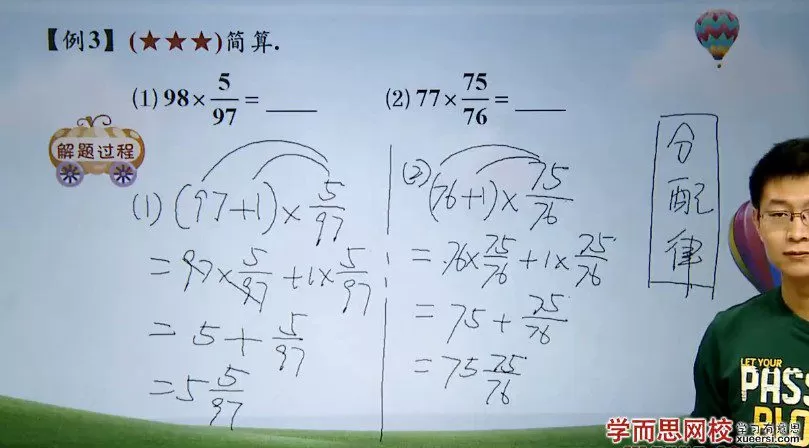 【例3】(★★★)简算.
(1) 98×5/97=____
(2) 77×75/76=____
解题过程
(1) (97+1)×5/97
=97×5/97+1×5/97
=5+5/97
=5 5/97
(2) (76+1)×75/76
=76×75/76+1×75/76
=75+75/76
=75 75/76
分配律
LET YOUR
PASS
学而思网校
学习有意思
xueersi.com